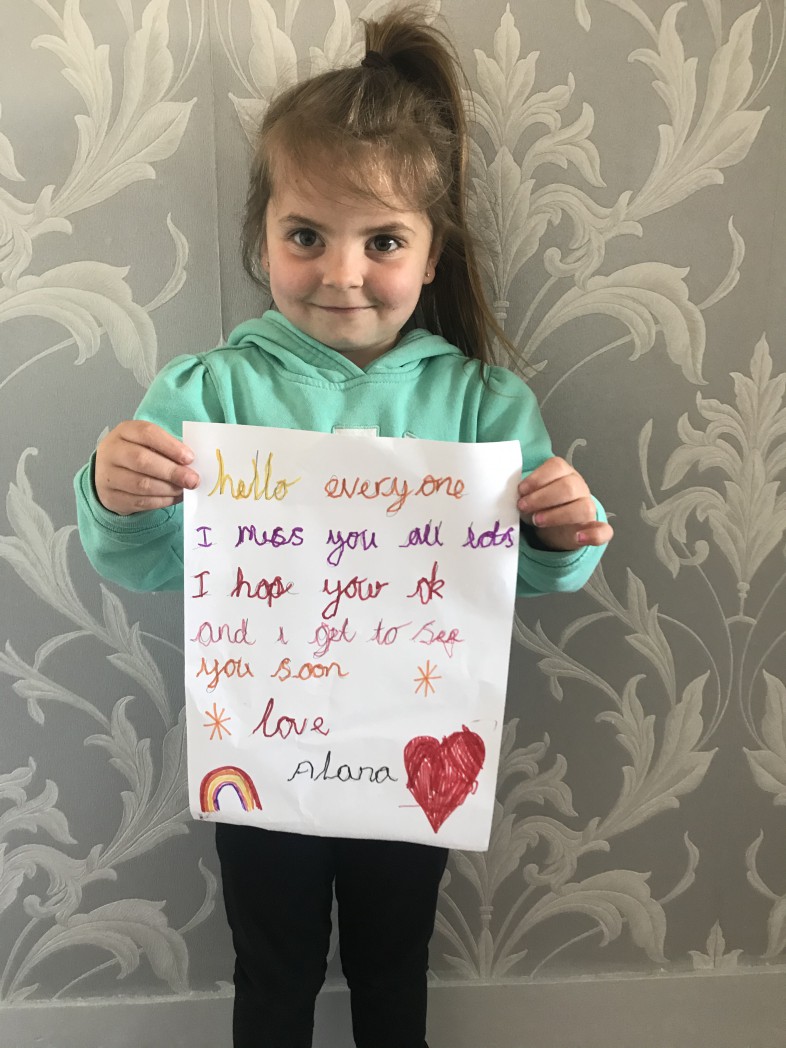 hello everyone
I miss you all lots
I hope your ok
and i get to see
you soon
love
Alana